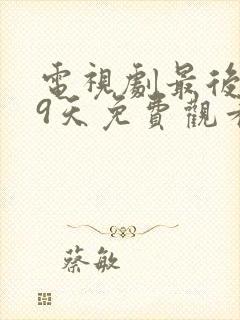 電視劇最後
9天免費觀看
蔡敏